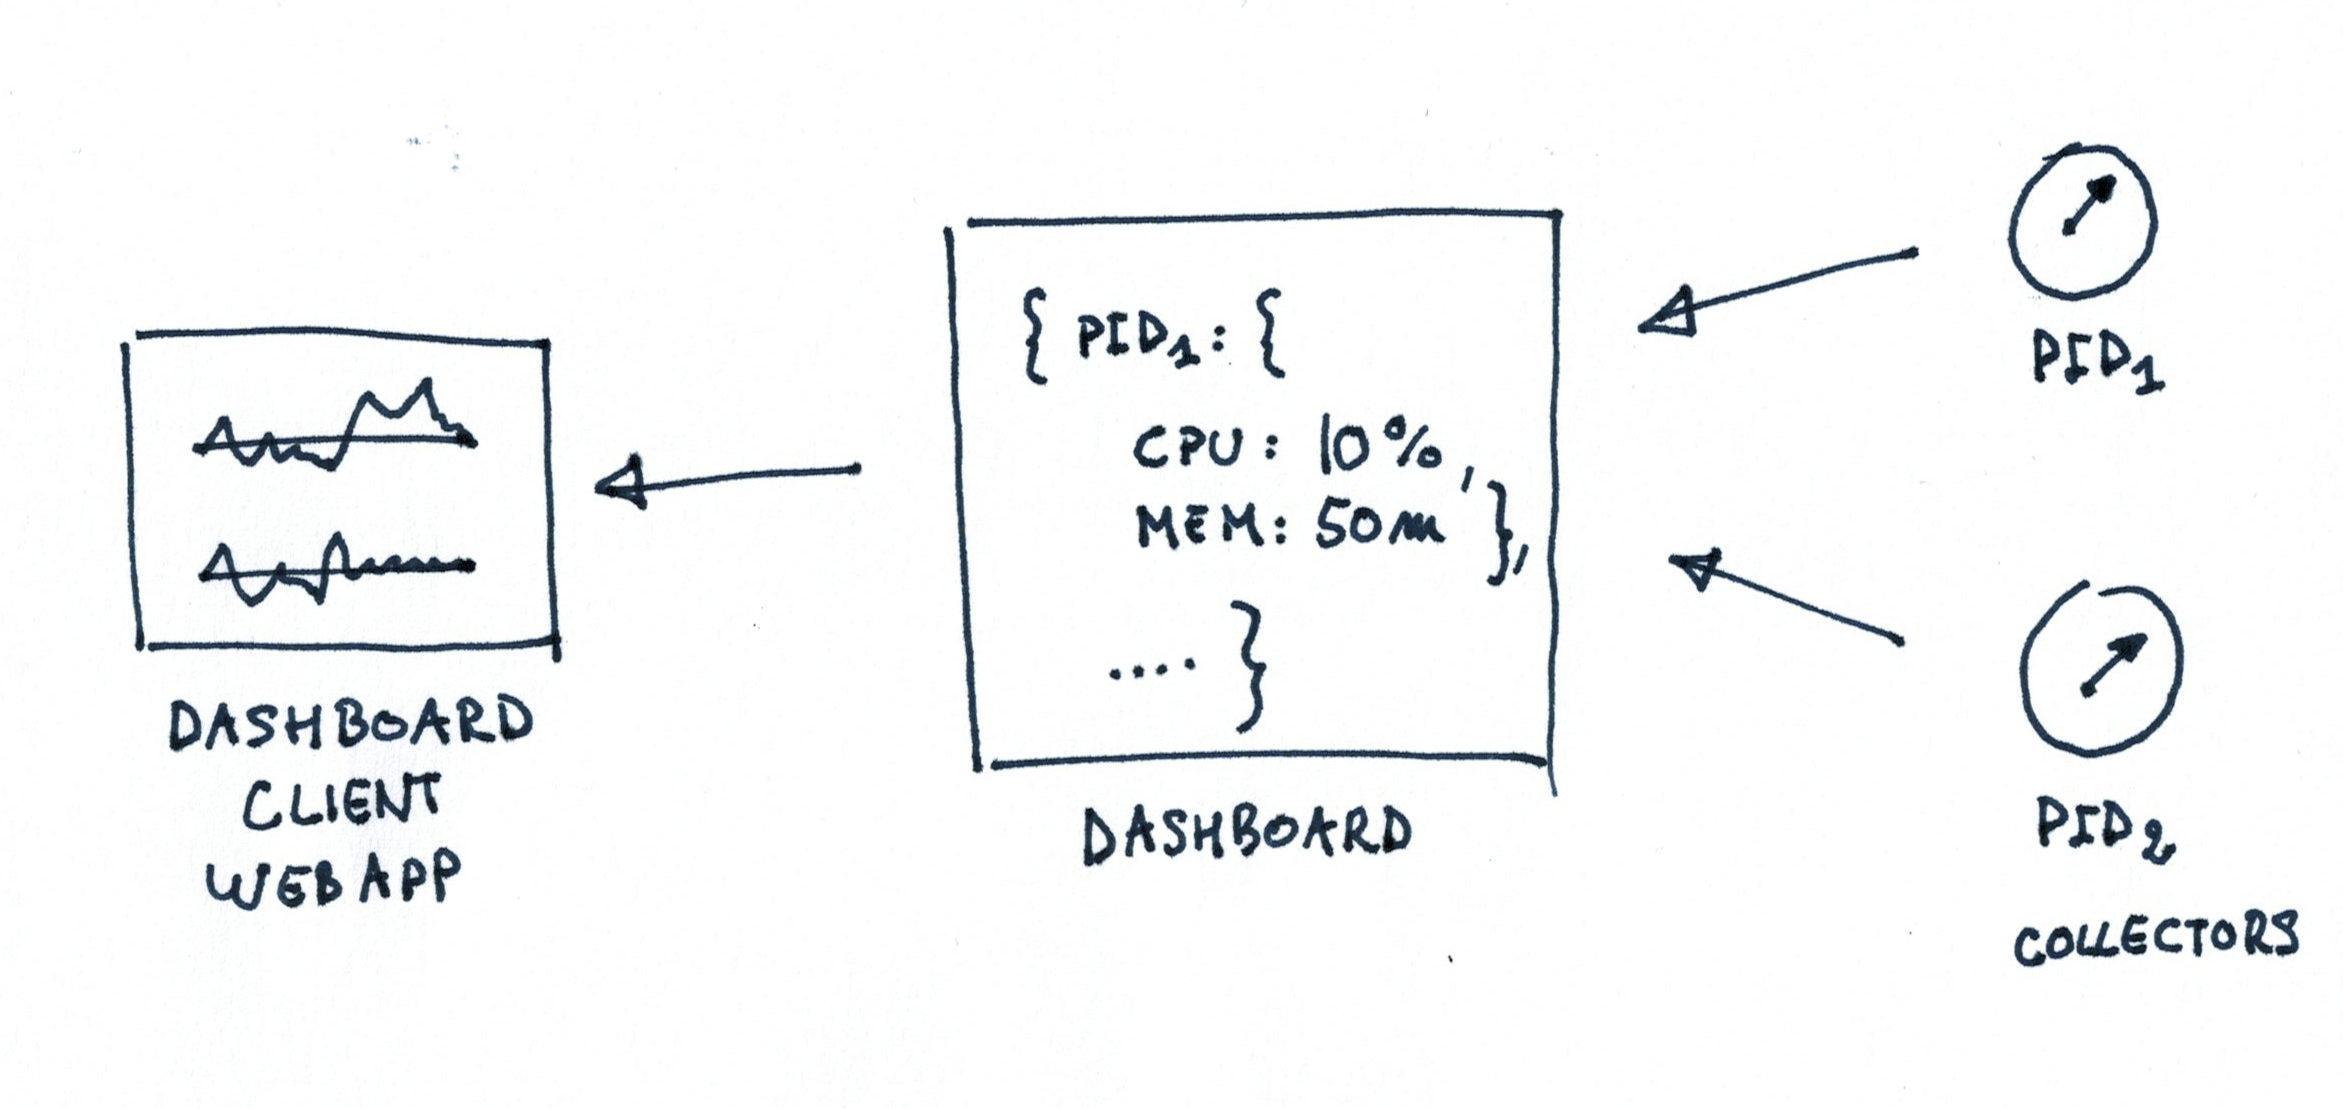 DASHBOARD
CLIENT
WEB APP
{ PID1: {
CPU: 10%,
MEM: 50m },
.... }
DASHBOARD
PID1
PID2
COLLECTORS